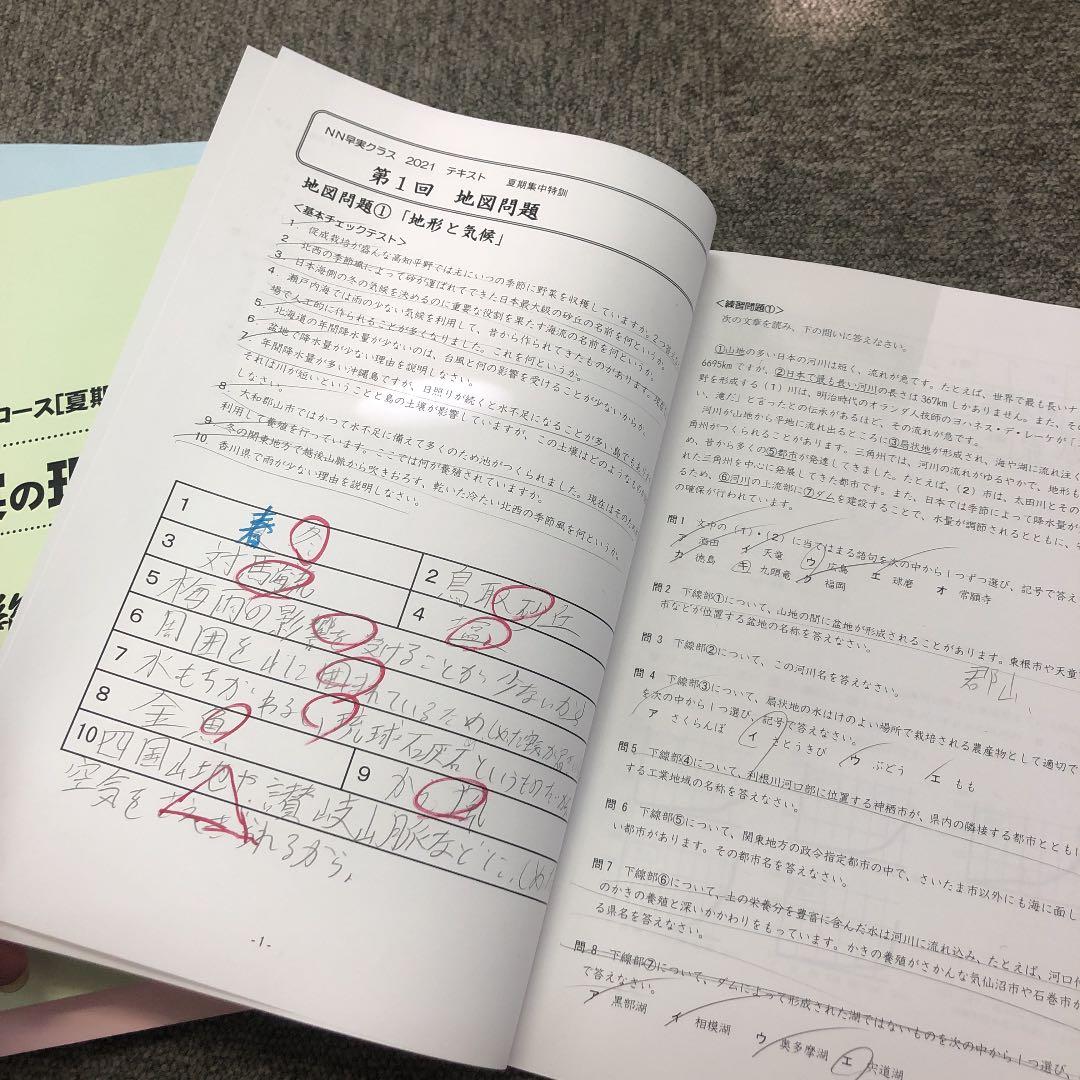 コース[夏期
の
NN早実クラス 2021 テキスト 夏期集中特訓
第1回 地図問題
地図問題①「地形と気候」
<基本チェックテスト>
1 促成栽培が盛んな高知平野では主にいつの季節に野菜を収穫していますか。2つ答え
2 北西の季節風によって砂が運ばれてできた日本最大級の砂丘の名前を何というか。
3 日本海側の冬の気候を決めるのに重要な役割を果たす海流の名前を何というか。
4 瀬戸内海では雨の少ない気候を利用して、昔から作られてきたものがあります。現在
場で人工的に作られることが多くなりました。これを何というか。
5 北海道の年間降水量が少ないのは、台風と何の影響を受けることが少ないからか。
6 盆地で降水量が少ない理由を説明しなさい。
7 年間降水量が多い沖縄島ですが、日照りが続くと水不足になることが多い島でもあ
それは川が短いということと島の土壌が影響していますが、この土壌はどのような
しなさい。
8 大和郡山市ではかつて水不足に備えて多くのため池がつくられました。現在はそのため
利用して養殖を行っています。ここでは何が養殖されていますか。
9 冬の関東地方で越後山脈から吹きおろす、乾いた冷たい北西の季節風を何というか。
10 香川県で雨が少ない理由を説明しなさい。
1 春 冬
2 鳥取砂丘
3 対馬海流
4 塩
5 梅雨の影響を受けることから少ないから
6 周囲を山に囲まれているため、しめった
7 水もちがわるい琉球石灰岩という
8 金魚
9 からっ風
10 四国山地や讃岐山脈などに、しめった
空気を さえぎられるから。
-1-
<練習問題①>
次の文章を読み、下の問いに答えなさい。
①山地の多い日本の河川は短く、流れが急です。たとえば、世界で最も長いナ
6695kmですが、②日本で最も長い河川の長さは367kmしかありません。また、その
野を形成する(1)川は、明治時代のオランダ技師のヨハネス・デ・レーケが「
い、滝だ」と言ったとの伝承があるほど、その流れが急です。
河川が山地から平地に流れ出るところに③扇状地が形成され、海や湖に流れ注ぐ
角州がつくられることがあります。三角州では、河川の流れがゆるやかで、地形も
め、昔から多くの⑤都市が発達してきました。たとえば、(2)市は、太田川とその
れた三角州を中心に発展してきた都市です。また、日本では季節によって降水量が
るため、⑥河川の上流部に⑦ダムを建設することで、水量が調節されるとともに、
の確保が行われています。
問1 文中の(1)・(2)に当てはまる語句を次の中から1つずつ選び、記号で答え
ア 酒田 イ 天竜 ウ 広島 エ 球磨 オ 常願寺
カ 徳島 キ 九頭竜 ク 福岡
問2 下線部①について、山地の間に盆地が形成されることがあります。東根市や天童
市などが位置する盆地の名称を答えなさい。
郡山
問3 下線部②について、この河川名を答えなさい。
問4 下線部③について、扇状地の水はけのよい場所で栽培される農産物として適切で
を次の中から1つ選び、記号で答えなさい。
ア さくらんぼ イ さとうきび ウ ぶどう エ もも
問5 下線部④について、利根川河口部に位置する神栖市が、県内の隣接する都市ととも
する工業地域の名称を答えなさい。
問6 下線部⑤について、関東地方の政令指定都市の中で、さいたま市以外にも海に面し
い都市があります。その都市名を答えなさい。
問7 下線部⑥について、土の栄養分を豊富に含んだ水は河川に流れ込み、たとえば、河口付
のかきの養殖と深いかかわりをもっています。かきの養殖がさかんな気仙沼市や石巻市が
る県名を答えなさい。
問8 下線部⑦について、ダムによって形成された湖ではないものを次の中から1つ選び、
で答えなさい。
ア 黒部湖 イ 相模湖 ウ 奥多摩湖 エ 宍道湖